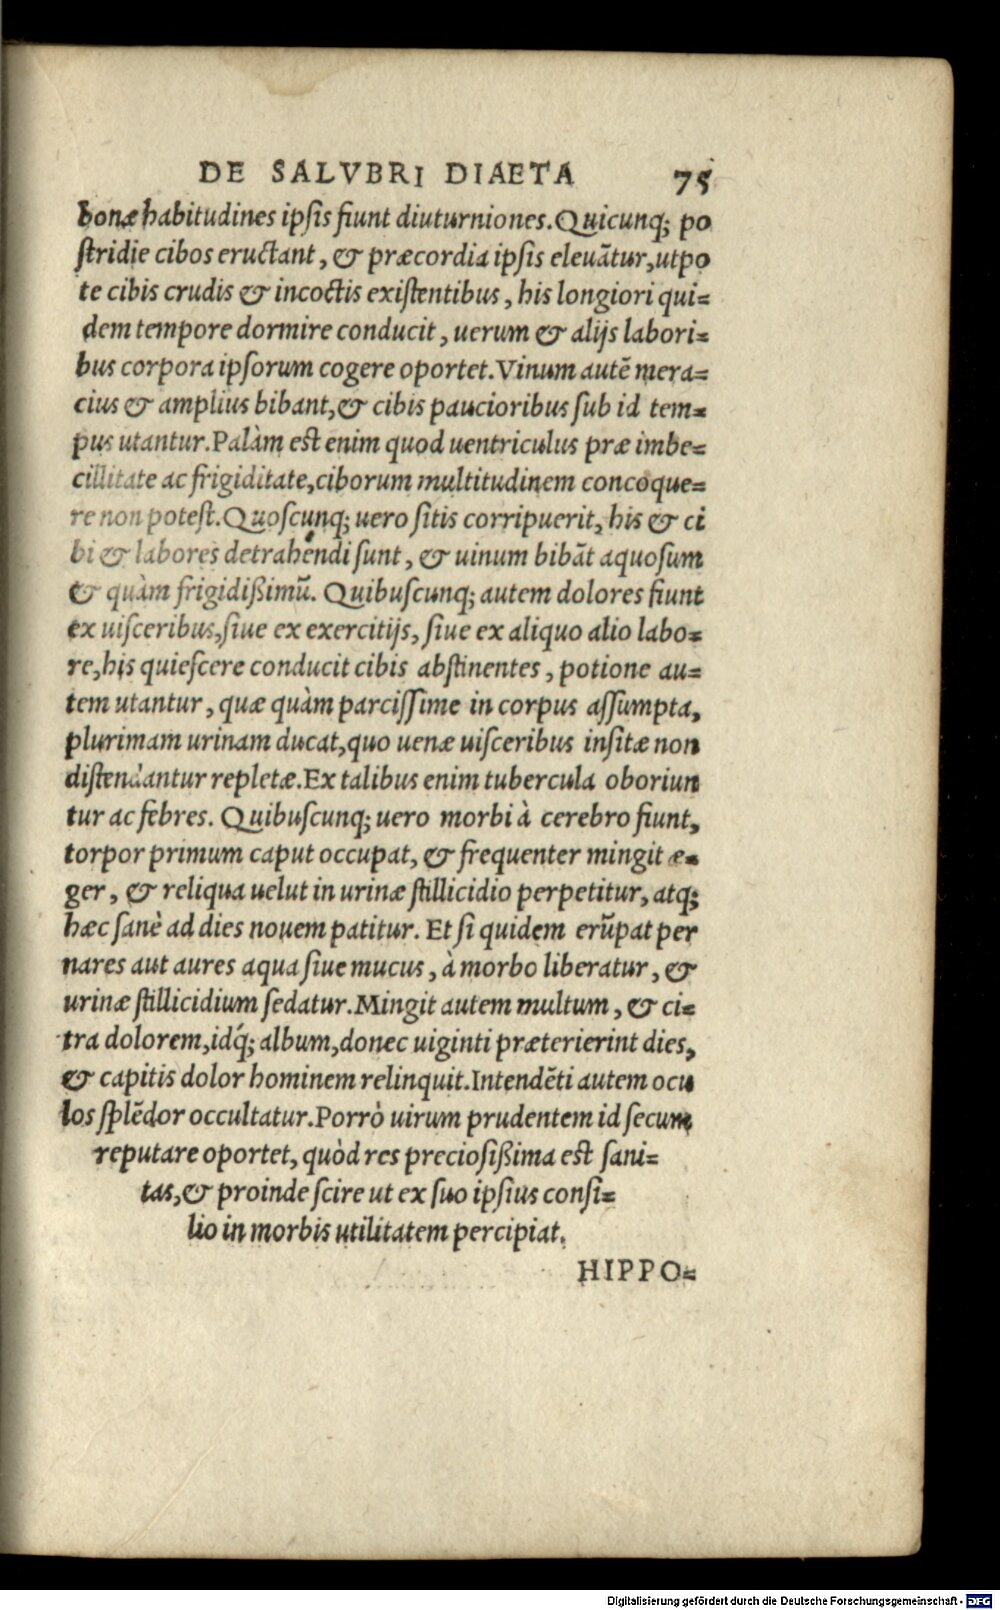 DE SALVBRI DIAETA 75
bonæ habitudines ipsis fiunt diuturniones. Quicunq; po
stridie cibos eructant, & præcordia ipsis eleuãtur, utpo
te cibis crudis & incoctis existentibus, his longiori qui=
dem tempore dormire conducit, uerum & alijs labori=
bus corpora ipsorum cogere oportet. Vinum autẽ mera=
cius & amplius bibant, & cibis paucioribus sub id tem=
pus utantur. Palàm est enim quod uentriculus præ imbe=
cillitate ac frigiditate, ciborum multitudinem concoque=
re non potest. Quoscunq; uero sitis corripuerit, his & ci
bi & labores detrahendi sunt, & uinum bibãt aquosum
& quàm frigidißimũ. Quibuscunq; autem dolores fiunt
ex uisceribus, siue ex exercitijs, siue ex aliquo alio labo=
re, his quiescere conducit cibis abstinentes, potione au=
tem utantur, quæ quàm parcissime in corpus assumpta,
plurimam urinam ducat, quo uenæ uisceribus insitæ non
distendantur repletæ. Ex talibus enim tubercula oboriun
tur ac febres. Quibuscunq; uero morbi à cerebro fiunt,
torpor primum caput occupat, & frequenter mingit æ=
ger, & reliqua uelut in urinæ stillicidio perpetitur, atq;
hæc sanè ad dies nouem patitur. Et si quidem erũpat per
nares aut aures aqua siue mucus, à morbo liberatur, &
urinæ stillicidium sedatur. Mingit autem multum, & ci=
tra dolorem, idq́; album, donec uiginti præterierint dies,
& capitis dolor hominem relinquit. Intendẽti autem ocu
los splẽdor occultatur. Porrò uirum prudentem id secum
reputare oportet, quòd res preciosißima est sani=
tas, & proinde scire ut ex suo ipsius consi=
lio in morbis utilitatem percipiat.
HIPPO=
Digitalisierung gefördert durch die Deutsche Forschungsgemeinschaft - DFG